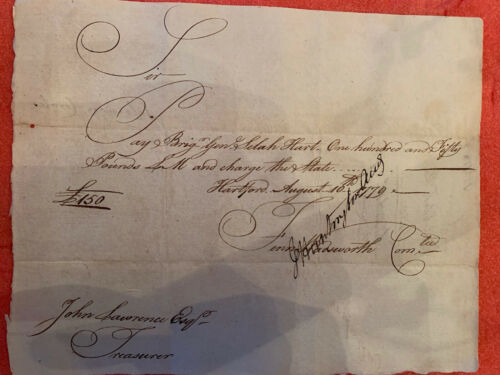 Sir
Pay Brigr. Gen Selah Hart One hundred and Fifty
Pounds L M and charge the State
Hartford August 16th 1779
£150
Fenn Wadsworth Comtee
John Lawrence Esqr
Treasurer